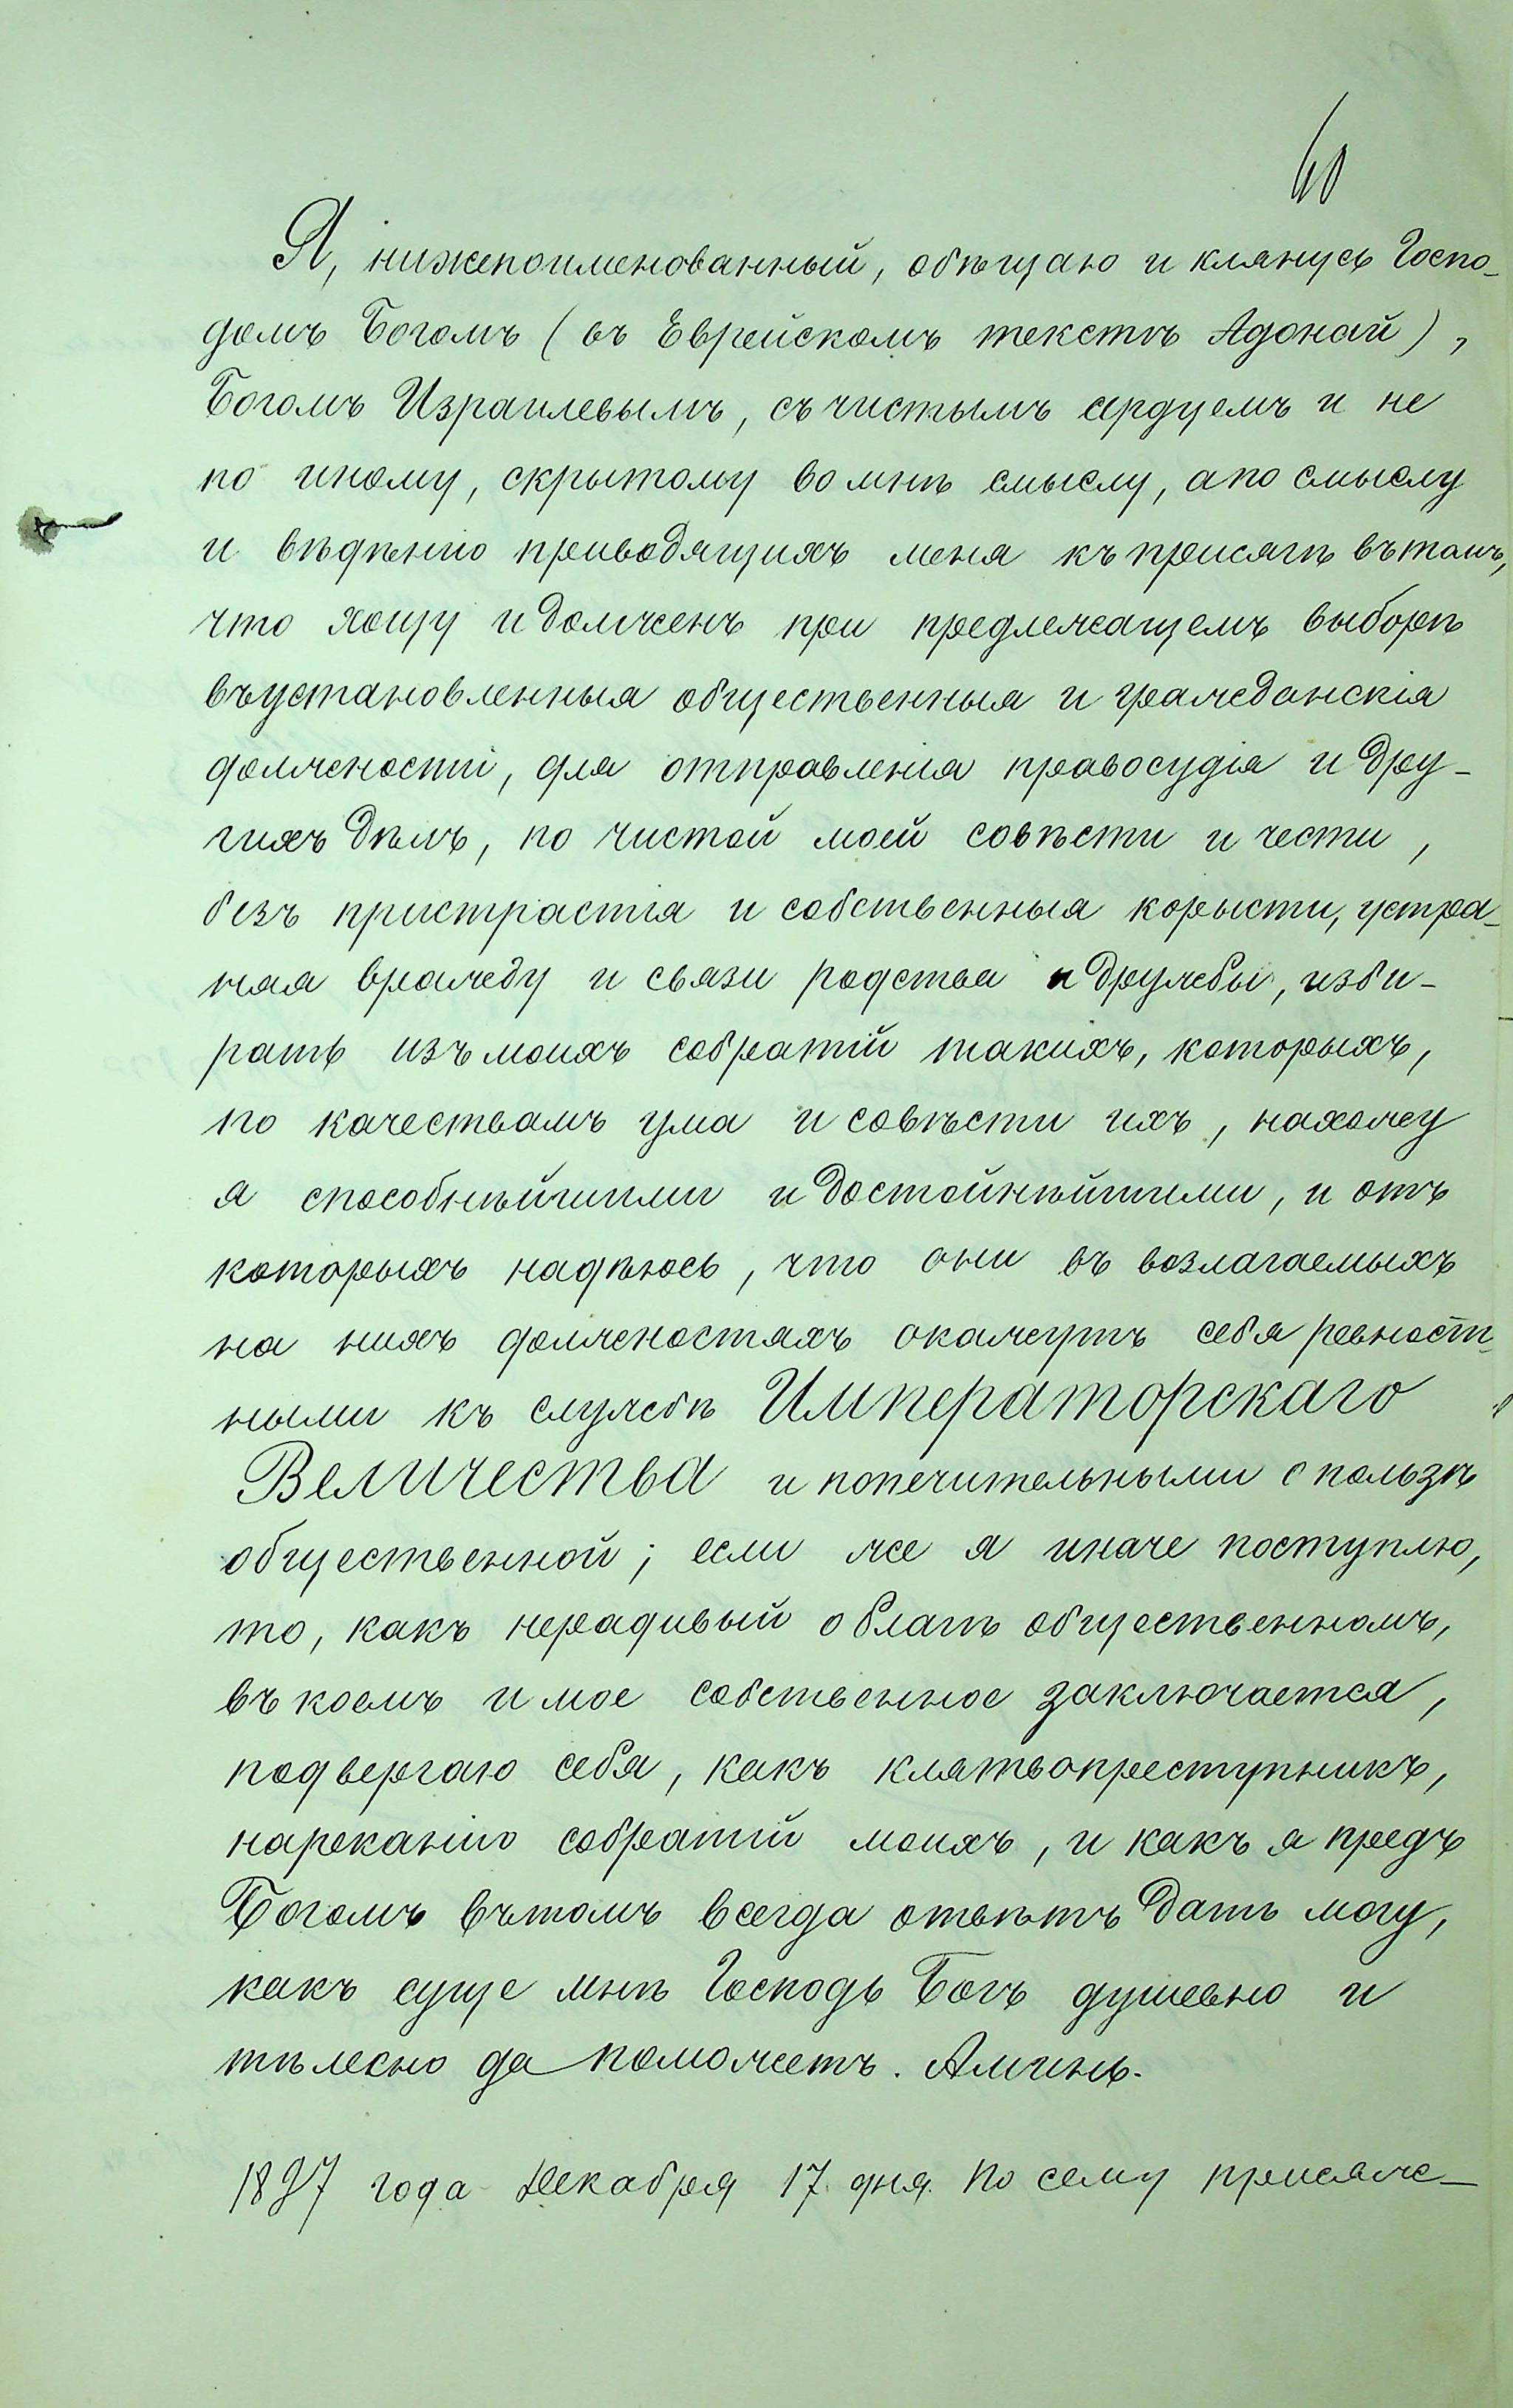 60
Я, нижепоименованный, обѣщаю и клянусь Госпо-
домъ Богомъ (въ Еврейскомъ текстѣ Адонай),
Богомъ Израилевымъ, съ чистымъ сердцемъ и не
по иному, скрытому во мнѣ смыслу, а по смыслу
и вѣдѣнію приводящихъ меня къ присягѣ въ томъ,
что хощу и долженъ при предлежащемъ выборѣ
въ установленныя общественныя и гражданскія
должности, для отправленія правосудія и дру-
гихъ дѣлъ, по чистой моей совѣсти и чести,
безъ пристрастія и собственныя корысти, устра-
няя вражду и связи родства и дружбы, изби-
рать изъ моихъ собратій такихъ, которыхъ,
по качествамъ ума и совѣсти ихъ, нахожу
я способнѣйшими и достойнѣйшими, и отъ
которыхъ надѣюсь, что они въ возлагаемыхъ
на нихъ должностяхъ окажутъ себя ревност-
ными къ службѣ Императорскаго
Величества и попечительными о пользѣ
общественной; если же я иначе поступлю,
то, какъ нерадивый о благѣ общественномъ,
въ коемъ и мое собственное заключается,
подвергаю себя, какъ клятвопреступникъ,
нареканію собратій моихъ, и какъ я предъ
Богомъ въ томъ всегда отвѣтъ дать могу,
какъ суще мнѣ Господь Богъ душевно и
тѣлесно да поможетъ. Аминь.
1897 года Декабря 17 дня. По сему присяже-